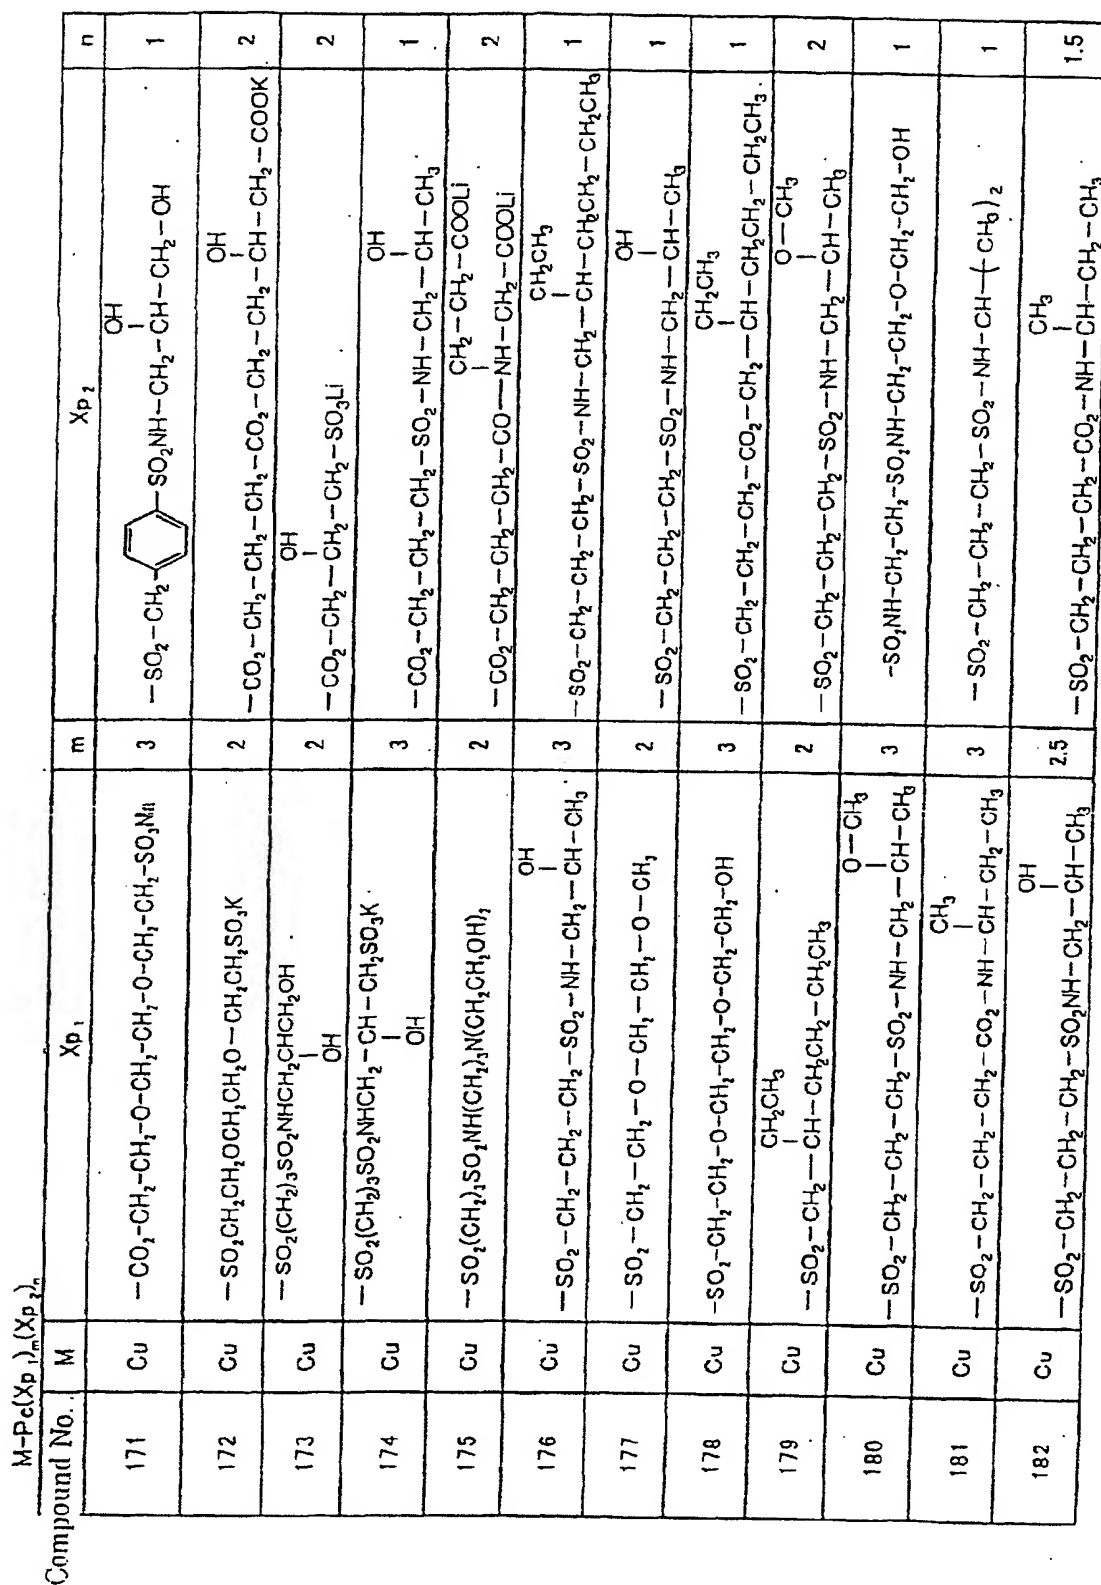 M-Pc(Xp₁)ₘ(Xp₂)ₙ
Compound No. M Xp₁ m Xp₂ n
OH
171 Cu —CO₂-CH₂-CH₂-O-CH₂-CH₂-O-CH₂-CH₂-SO₃Na 3 —SO₂-CH₂- -SO₂NH-CH₂-CH-CH₂-OH 1
OH
172 Cu —SO₂CH₂CH₂OCH₂CH₂O—CH₂CH₂SO₃K 2 —CO₂-CH₂-CH₂-CH₂-CO₂-CH₂-CH₂-CH-CH₂-COOK 2
OH
173 Cu —SO₂(CH₂)₃SO₂NHCH₂CHCH₂OH 2 —CO₂-CH₂-CH₂-CH₂-SO₃Li 2
OH
OH
174 Cu —SO₂(CH₂)₃SO₂NHCH₂—CH—CH₂SO₃K 3 —CO₂-CH₂-CH₂-CH₂-SO₂-NH-CH₂-CH-CH₃ 1
OH
CH₂-CH₂-COOLi
175 Cu —SO₂(CH₂)₃SO₂NH(CH₂)₃N(CH₂CH₂OH)₂ 2 —CO₂-CH₂-CH₂-CH₂-CO—NH-CH₂-COOLi 2
OH CH₂CH₃
176 Cu —SO₂-CH₂-CH₂-CH₂-SO₂-NH-CH₂-CH-CH₃ 3 —SO₂-CH₂-CH₂-CH₂-SO₂-NH-CH₂-CH-CH₂CH₂-CH₂CH₃ 1
OH
177 Cu —SO₂-CH₂-CH₂-O-CH₂-CH₂-O-CH₃ 2 —SO₂-CH₂-CH₂-CH₂-SO₂-NH-CH₂-CH-CH₃ 1
CH₂CH₃
178 Cu -SO₂-CH₂-CH₂-O-CH₂-CH₂-O-CH₂-CH₂-OH 3 —SO₂-CH₂-CH₂-CH₂-CO₂-CH₂-CH-CH₂CH₂-CH₂CH₃ 1
CH₂CH₃ O—CH₃
179 Cu —SO₂-CH₂-CH-CH₂CH₂-CH₂CH₃ 2 —SO₂-CH₂-CH₂-CH₂-SO₂-NH-CH₂-CH-CH₃ 2
O—CH₃
180 Cu —SO₂-CH₂-CH₂-CH₂-SO₂-NH-CH₂-CH-CH₃ 3 -SO₂NH-CH₂-CH₂-SO₂NH-CH₂-CH₂-O-CH₂-CH₂-OH 1
CH₃
181 Cu —SO₂-CH₂-CH₂-CH₂-CO₂-NH-CH-CH₂-CH₃ 3 —SO₂-CH₂-CH₂-CH₂-SO₂-NH-CH-(CH₃)₂ 1
OH CH₃
182 Cu —SO₂-CH₂-CH₂-CH₂-SO₂NH-CH₂-CH-CH₃ 2.5 —SO₂-CH₂-CH₂-CH₂-CO₂-NH-CH-CH₂-CH₃ 1.5